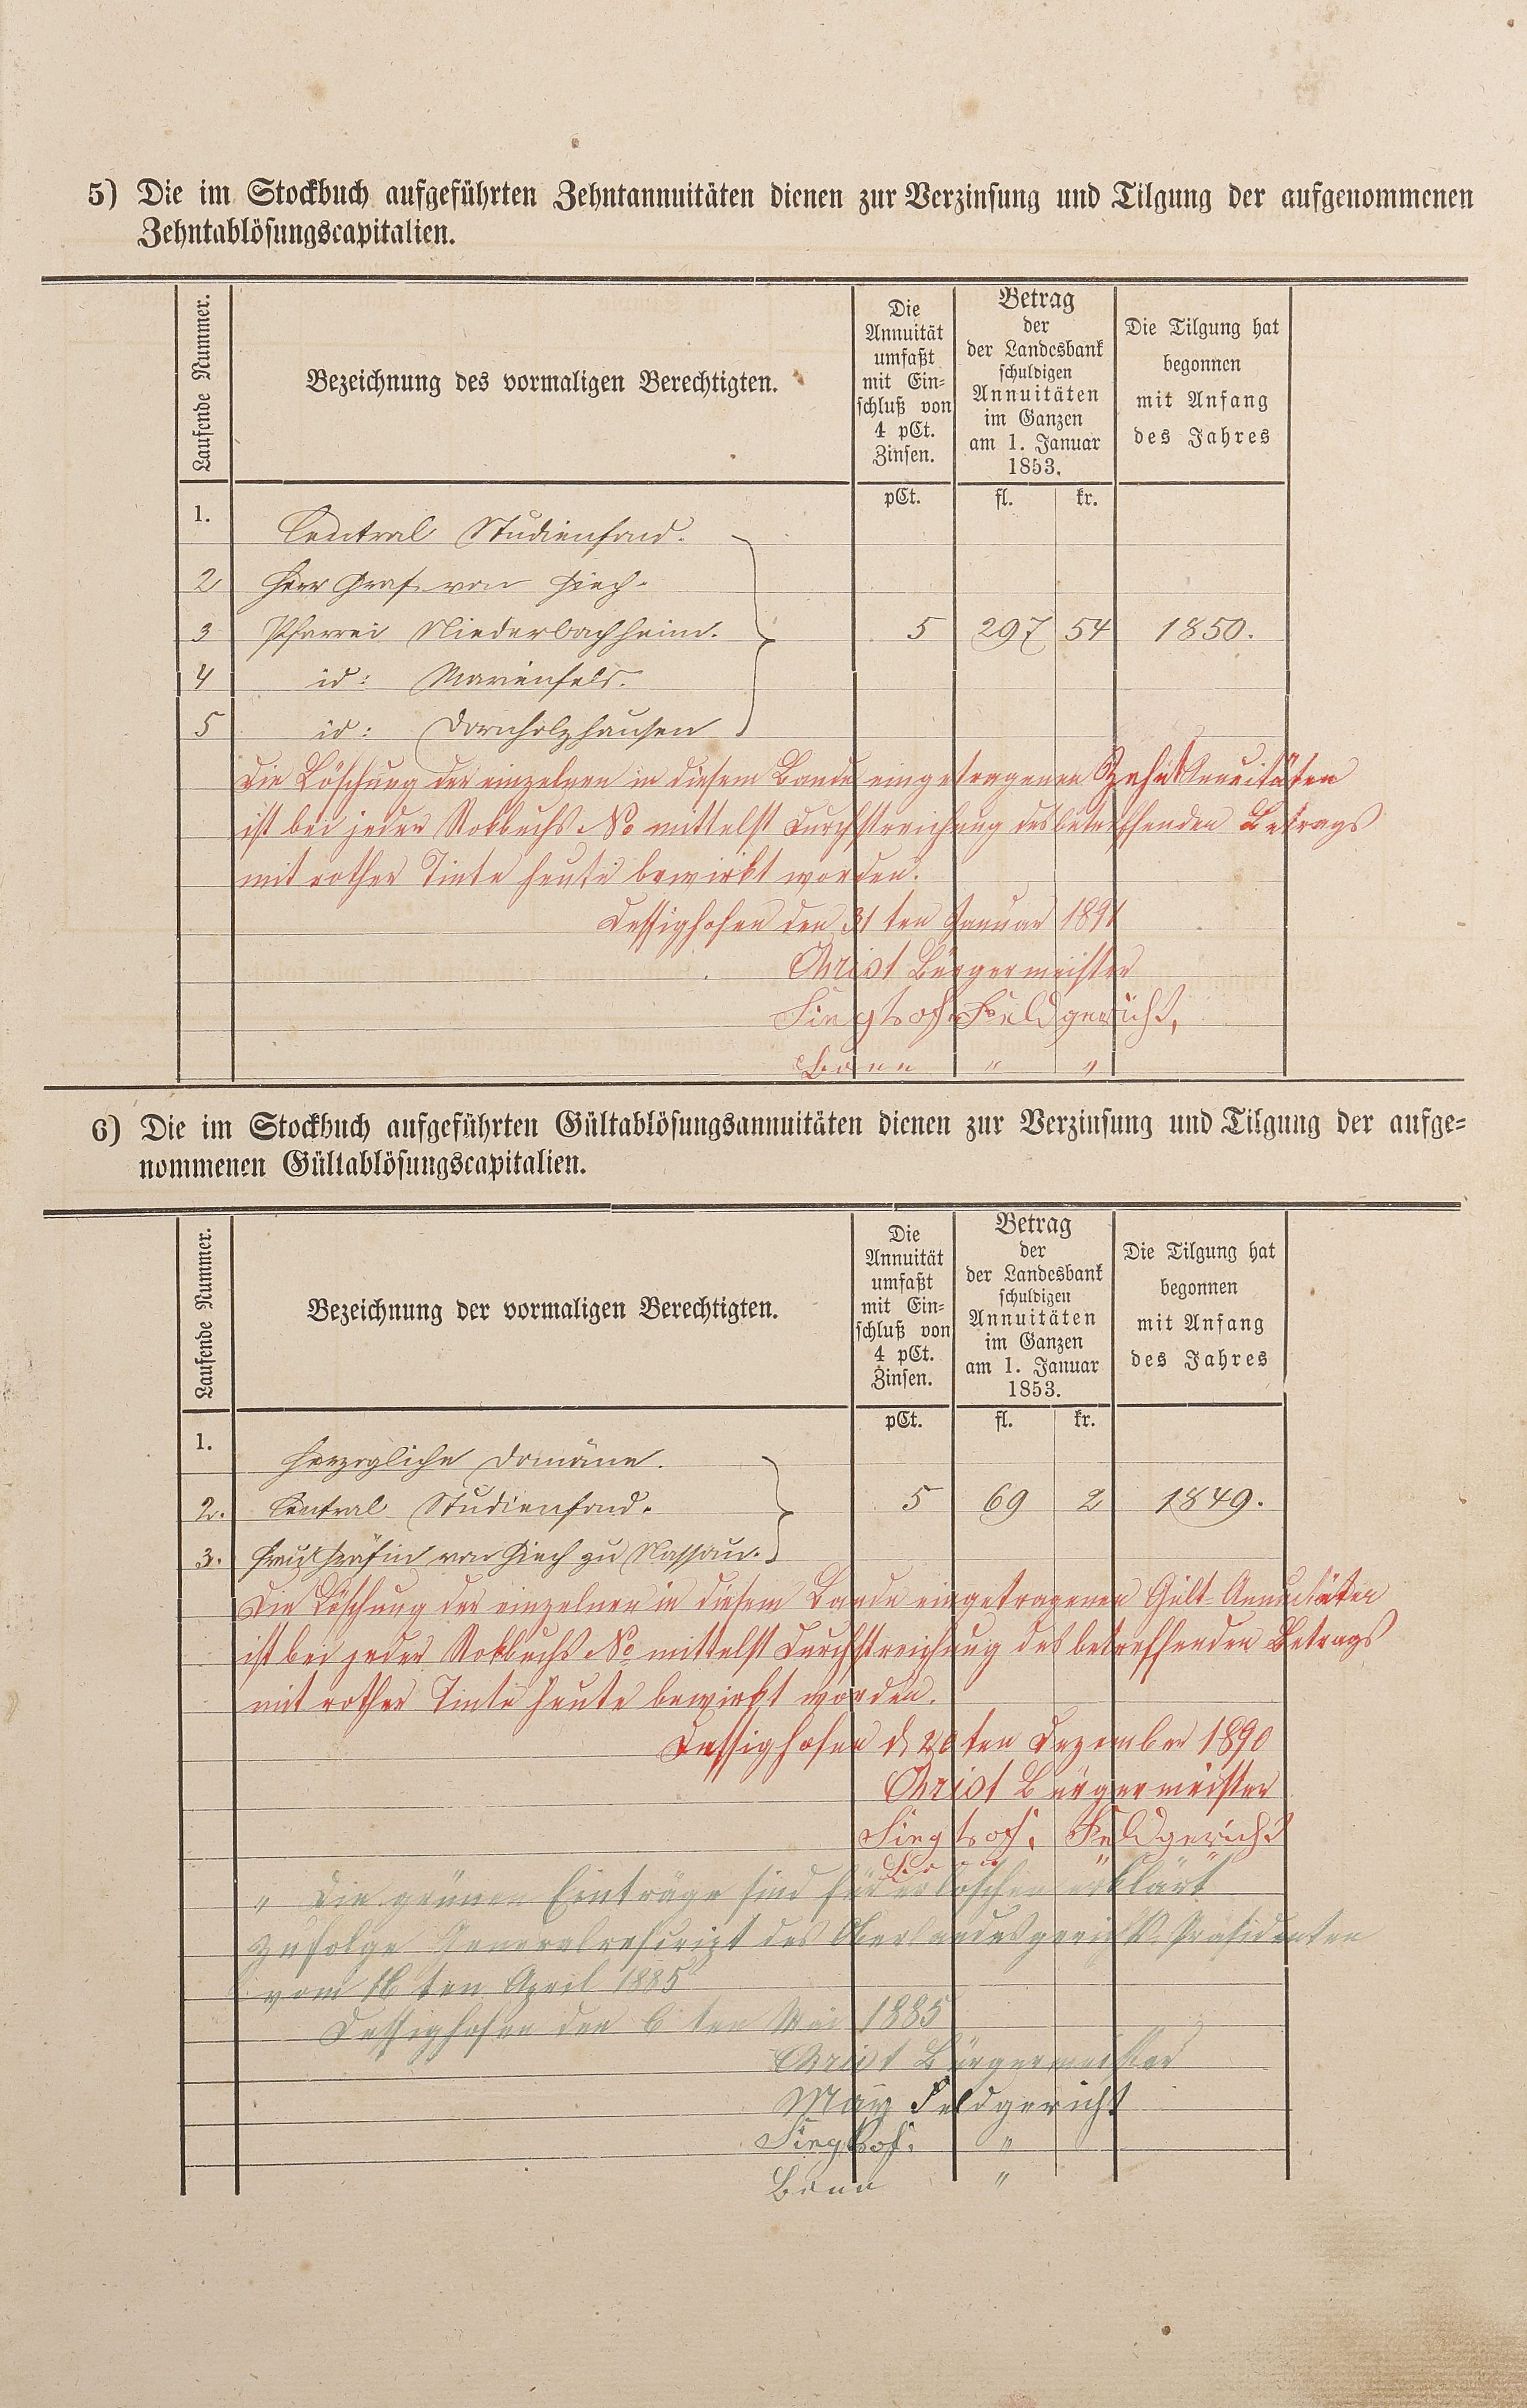 5) Die im Stockbuch aufgeführten Zehntannuitäten dienen zur Verzinsung und Tilgung der aufgenommenen
Zehntablösungscapitalien.
Laufende Nummer.
Bezeichnung des vormaligen Berechtigten.
Die
Annuität
umfaßt
mit Ein=
schluß von
4 pCt.
Zinsen.
Betrag
der
der Landesbank
schuldigen
Annuitäten
im Ganzen
am 1. Januar
1853.
Die Tilgung hat
begonnen
mit Anfang
des Jahres
pCt. fl. kr.
1. Central Studienfond.
2 Herr Graf von Giech.
3 Pfarrei Niederbachheim. 5 297 54 1850.
4 id: Marienfels.
5 id: Dornholzhausen
Die Löschung der einzelnen in diesem Bande eingetragenen Zehnt Annuitäten
ist bei jeder Stokbuchs No mittelst Durchstreichung des betreffenden Betrags
mit rother Tinte heute bewirkt worden.
Dessighofen den 31 ten Januar 1891
Christ Bürgermeister
Singhof Feldgericht,
Bonn " "
6) Die im Stockbuch aufgeführten Gültablösungsannuitäten dienen zur Verzinsung und Tilgung der aufge=
nommenen Gültablösungscapitalien.
Laufende Nummer.
Bezeichnung der vormaligen Berechtigten.
Die
Annuität
umfaßt
mit Ein=
schluß von
4 pCt.
Zinsen.
Betrag
der
der Landesbank
schuldigen
Annuitäten
im Ganzen
am 1. Januar
1853.
Die Tilgung hat
begonnen
mit Anfang
des Jahres
pCt. fl. kr.
1. Herzogliche Domäne.
2. Central Studienfond. 5 69 2 1849.
3. Frau Gräfin von Giech zu Nassau.
Die Löschung der einzelnen in diesem Bande eingetragenen Gült-Annuitäten
ist bei jeder Stokbuchs No mittelst Durchstreichung des betreffenden Betrags
mit rother Tinte heute bewirkt worden.
Dessighofen d 20 ten Dezember 1890
Christ Bürgermeister
Singhof. Feldgericht
Bonn " "
" Die grünen Einträge sind für erloschen erklärt
zufolge Generalrescript des Oberlandesgerichts Präsidenten
vom 16 ten April 1885
Dessighofen den 6 ten Mai 1885
Christ Bürgermeister
May Feldgericht
Singhof. "
Bonn "